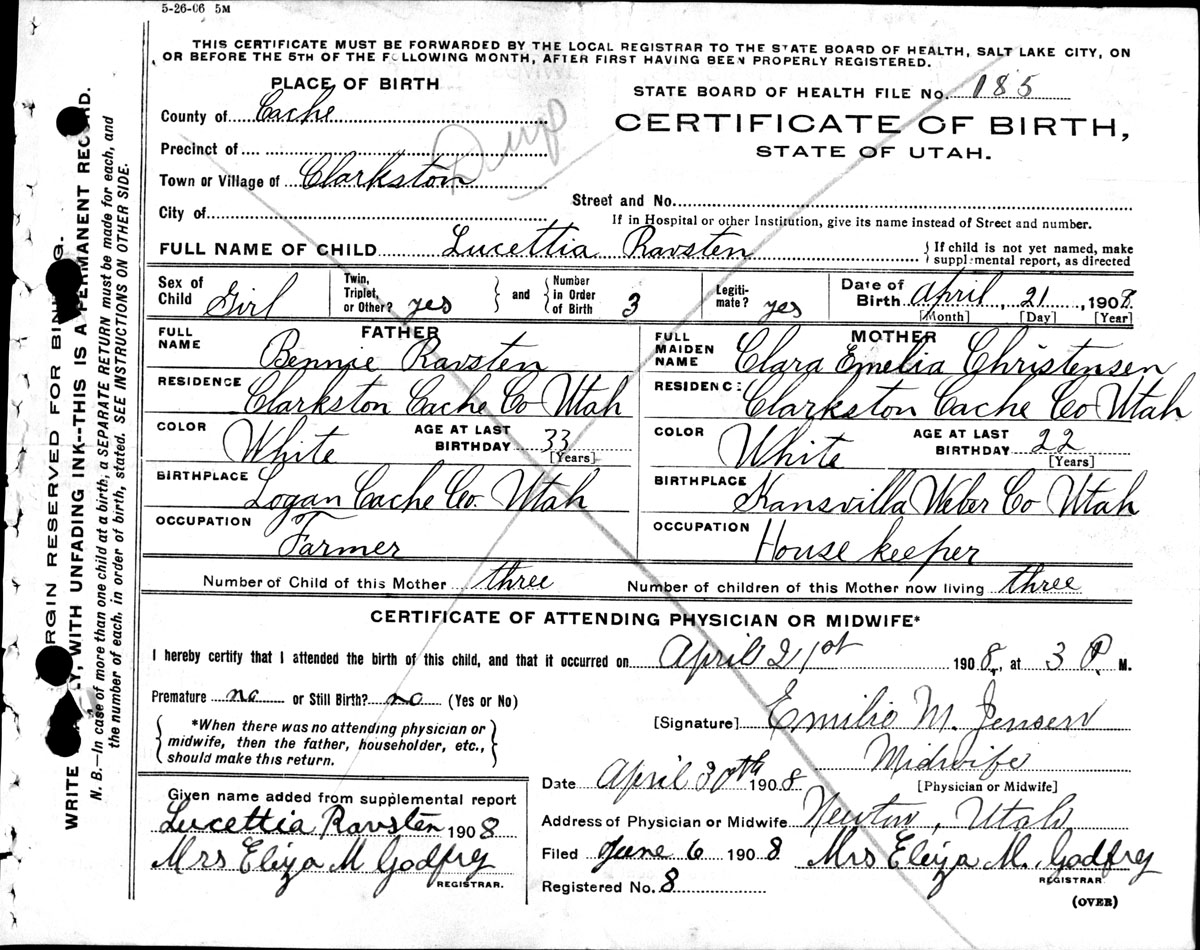 5-26-06 5M
THIS CERTIFICATE MUST BE FORWARDED BY THE LOCAL REGISTRAR TO THE STATE BOARD OF HEALTH, SALT LAKE CITY, ON
OR BEFORE THE 5TH OF THE FOLLOWING MONTH, AFTER FIRST HAVING BEEN PROPERLY REGISTERED.
PLACE OF BIRTH
STATE BOARD OF HEALTH FILE No. 185
County of Cache
Dup
CERTIFICATE OF BIRTH,
STATE OF UTAH.
Precinct of
Town or Village of Clarkston
Street and No.
City of
If in Hospital or other Institution, give its name instead of Street and number.
FULL NAME OF CHILD Lucettia Ravsten
{ If child is not yet named, make
supplemental report, as directed
Sex of Child Girl
Twin, Triplet, or Other? yes } and { Number in Order of Birth 3
Legitimate? yes
Date of Birth April, 21, 1908.
[Month] [Day] [Year]
FATHER
FULL NAME Bennie Ravsten
RESIDENCE Clarkston Cache Co Utah
COLOR White AGE AT LAST BIRTHDAY 33
[Years]
BIRTHPLACE Logan Cache Co. Utah
OCCUPATION Farmer
MOTHER
FULL MAIDEN NAME Clara Emelia Christensen
RESIDENC: Clarkston Cache Co Utah
COLOR White AGE AT LAST BIRTHDAY 22
[Years]
BIRTHPLACE Kansvilla Weber Co Utah
OCCUPATION House keeper
Number of Child of this Mother three Number of children of this Mother now living three
CERTIFICATE OF ATTENDING PHYSICIAN OR MIDWIFE*
I hereby certify that I attended the birth of this child, and that it occurred on April 21st 1908, at 3 P. M.
Premature no or Still Birth? no (Yes or No)
{ *When there was no attending physician or
midwife, then the father, householder, etc.,
should make this return. }
[Signature] Emilio M. Jensen
Midwife
[Physician or Midwife]
Date April 30th 1908
Address of Physician or Midwife Newton, Utah
Filed June 6 1908 Mrs Eliza M. Godfrey
REGISTRAR
Registered No. 8
(OVER)
Given name added from supplemental report
Lucettia Ravsten 1908
Mrs Eliza M Godfrey
REGISTRAR.
RGIN RESERVED FOR BIN G.
WRITE LY, WITH UNFADING INK--THIS IS A PERMANENT RECORD.
N. B.—In case of more than one child at a birth, a SEPARATE RETURN must be made for each, and
the number of each, in order of birth, stated. SEE INSTRUCTIONS ON OTHER SIDE.